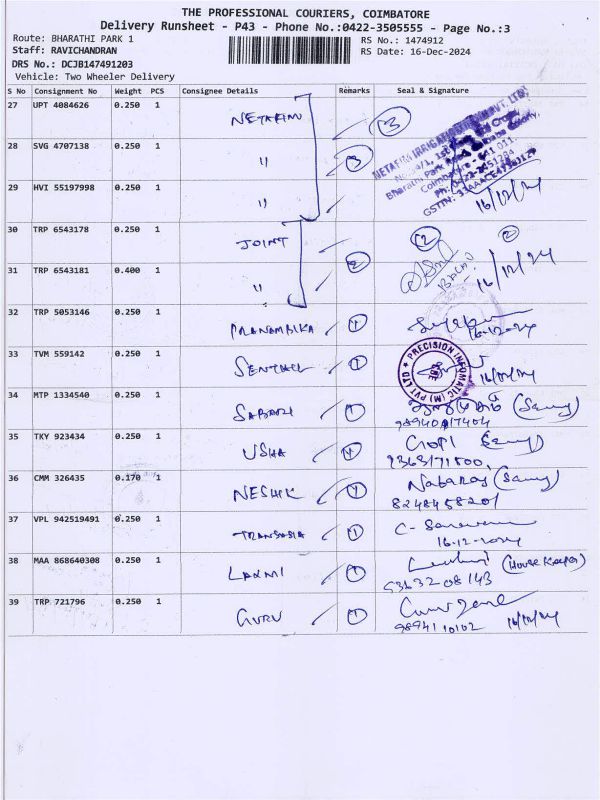 THE PROFESSIONAL COURIERS, COIMBATORE
Delivery Runsheet - P43 - Phone No.:0422-3505555 - Page No.:3
Route: BHARATHI PARK 1
RS No.: 1474912
Staff: RAVICHANDRAN
RS Date: 16-Dec-2024
DRS No.: DCJB147491203
Vehicle: Two Wheeler Delivery
S No Consignment No Weight PCS Consignee Details Remarks Seal & Signature
27 UPT 4084626 0.250 1 NETAFIM 3
28 SVG 4707138 0.250 1 " 3
29 HVI 55197998 0.250 1 " 16/12/24
30 TRP 6543178 0.250 1 JOINT 2 2
31 TRP 6543181 0.400 1 " 2 16/12/24
32 TRP 5053146 0.250 1 PRANAMBIKA 1 16-12-24
33 TVM 559142 0.250 1 SENTHIL 1 PRECISION INFOMATIC (M) PVT LTD CBE 16/12/24
34 MTP 1334540 0.250 1 SABARI 1
9894017404
35 TKY 923434 0.250 1 USHA 1 Gopi
9363171800
36 CMM 326435 0.170 1 NESHIK 1 Nataraj
8248458201
37 VPL 942519491 0.250 1 TRANSASIA 1 C-
16-12-2024
38 MAA 868640308 0.250 1 LAXMI 1 (House Keeper)
93632 08143
39 TRP 721796 0.250 1 GURU 1
9894110102 16/12/24